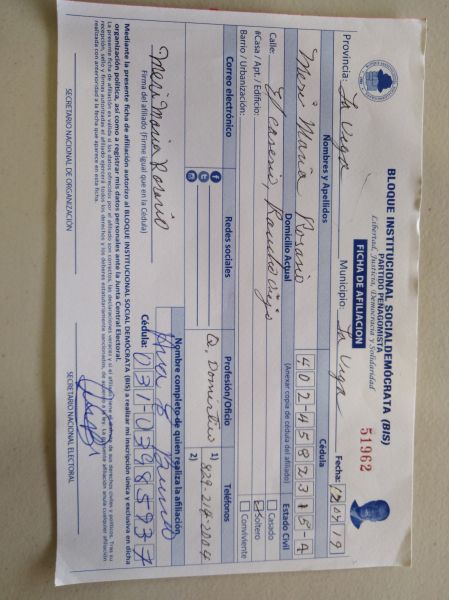 BLOQUE INSTITUCIONAL SOCIALDEMÓCRATA (BIS)
PARTIDO PEÑAGOMISTA
Libertad, Justicia, Democracia y Solidaridad
FICHA DE AFILIACIÓN
51962
Provincia: La Vega Municipio: La Vega Fecha: 04/19
Nombres y Apellidos Cédula
Meri Maria Rosario
Domicilio Actual (Anexar copia de cédula del afiliado) Estado Civil
Calle: El caserio, Rancho viejo
#Casa / Apt. / Edificio:
Barrio / Urbanización:
Casado
Soltero
Conviviente
Correo electrónico Redes sociales Profesión/Oficio Teléfonos
Q. Domestico 1) 829-214-2004
2)
Meri Maria Rosario
Firma del afiliado (Firme igual que en la Cédula)
Nombre completo de quien realiza la afiliación
Cédula: 031-0398593-7
Mediante la presente ficha de afiliación autorizo al BLOQUE INSTITUCIONAL SOCIAL DEMÓCRATA (BIS) a realizar mi inscripción única y exclusiva en dicha
organización política, así como a registrar mis datos personales ante la Junta Central Electoral.
SECRETARIO NACIONAL DE ORGANIZACIÓN SECRETARIO NACIONAL ELECTORAL